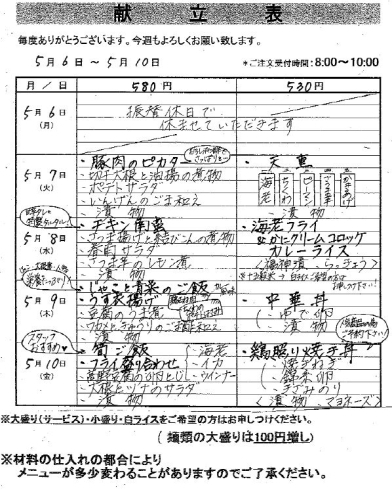 献立表
毎度ありがとうございます。今週もよろしくお願い致します。
5月6日 ～ 5月10日
*ご注文受付時間:8:00～10:00
月/日 580円 530円
5月6日(月)
振替休日で
休ませていただきます
5月7日(火)
・豚肉のピカタ
・切干大根と油揚の煮物
・ポテトサラダ
・いんげんのごま和え
・漬物
・天重
海老
ちくわ
ピーマン
・漬物
5月8日(水)
・チキン南蛮
・さつま揚げと結びこんの煮物
・春雨サラダ
・さつま芋のレモン煮
・漬物
・海老フライ
&かにクリームコロッケ
カレーライス
(福神漬・らっきょう)
5月9日(木)
・じゃこと青菜のご飯
・うす衣揚げ
・豆腐のうま煮
・ワカメときゅうりのごま酢和え
・漬物
・中華丼
(・ゆで卵
・漬物
5月10日(金)
スタッフおすすめ♥
・筍ご飯
・フライ盛り合わせ
(海老
・イカ
・ウインナー
・高野豆腐の卵とじ
・大根とツナのサラダ
・漬物
・鶏照り焼き丼
(・焼ねぎ
・錦糸卵
・きざみのり
(漬物 マヨネーズ)
※大盛り(サービス)・小盛り・白ライスをご希望の方はお申しつけください。
(麺類の大盛りは100円増し)
※材料の仕入れの都合により
メニューが多少変わることがありますのでご了承ください。